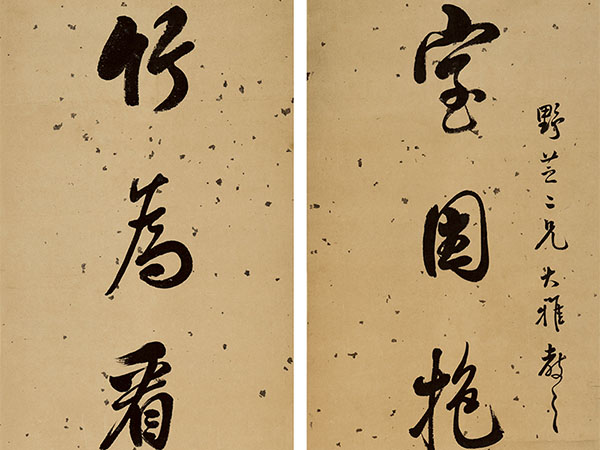 野芷二兄大雅教之
室因抱
竹為看